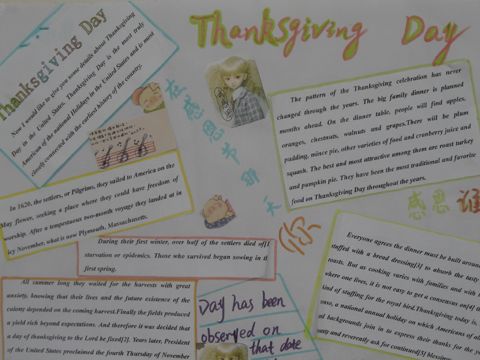 Thanksgiving Day
Thanksgiving Day
Now I would like to give you some details about Thanksgiving
Day in the United States. Thanksgiving Day is the most truly
American of the national Holidays in the United States and is most
closely connected with the earliest history of the country.
在感恩节那天
你
感恩谁
The pattern of the Thanksgiving celebration has never
changed through the years. The big family dinner is planned
months ahead. On the dinner table, people will find apples,
oranges, chestnuts, walnuts and grapes.There will be plum
pudding, mince pie, other varieties of food and cranberry juice and
squash. The best and most attractive among them are roast turkey
and pumpkin pie. They have been the most traditional and favorite
food on Thanksgiving Day throughout the years.
In 1620, the settlers, or Pilgrims, they sailed to America on the
May flower, seeking a place where they could have freedom of
worship. After a tempestuous two-month voyage they landed at in
icy November, what is now Plymouth, Massachusetts.
During their first winter, over half of the settlers died of[1
starvation or epidemics. Those who survived began sowing in the
first spring.
All summer long they waited for the harvests with great
anxiety, knowing that their lives and the future existence of the
colony depended on the coming harvest.Finally the fields produced
a yield rich beyond expectations. And therefore it was decided that
a day of thanksgiving to the Lord be fixed[1]. Years later, President
of the United States proclaimed the fourth Thursday of November
Day has been
observed on
that date
Everyone agrees the dinner must be built around
stuffed with a bread dressing[3 to absorb the tasty
roast. But as cooking varies with families and with
where one lives, it is not easy to get a consensus on
kind of stuffing for the royal bird.Thanksgiving today is,
case, a national annual holiday on which Americans of
and backgrounds join in to express their thanks for the
and reverently ask for continued